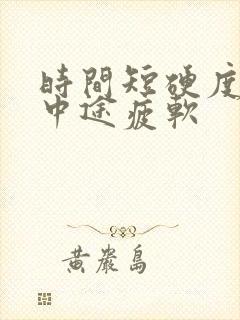 時間短硬度
中途疲軟
黃嚴島